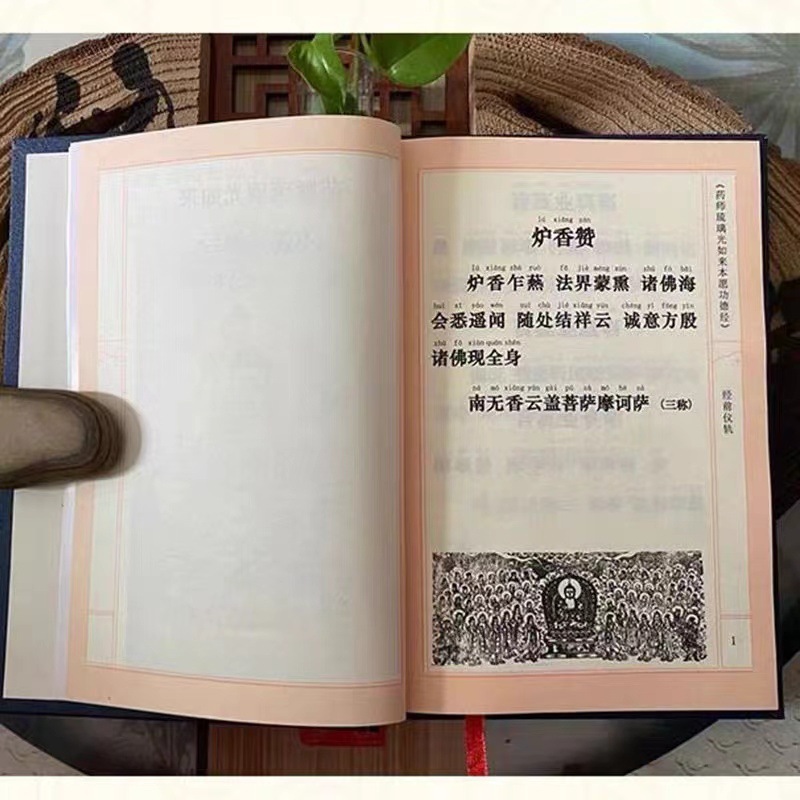 lú xiāng zàn
炉香赞
lú xiāng zhà ruò fǎ jiè méng xūn zhū fó hǎi
炉香乍爇 法界蒙熏 诸佛海
huì xī yáo wén suí chù jié xiáng yún chéng yì fāng yīn
会悉遥闻 随处结祥云 诚意方殷
zhū fó xiàn quán shēn
诸佛现全身
ná mó xiāng yún gài pú sà mó hē sà
南无香云盖菩萨摩诃萨 (三称)
《药师琉璃光如来本愿功德经》
经前仪轨
1